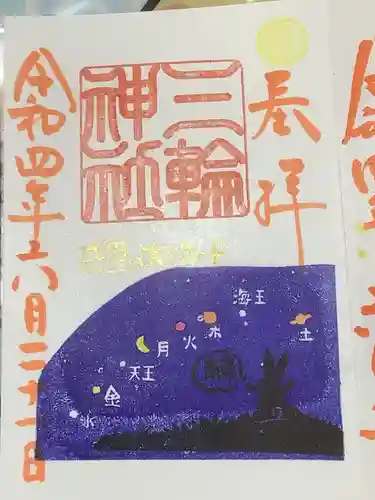 奉拝
三輪
神社
令和四年六月二十一日
海王
土
木
火
月
天王
金
水